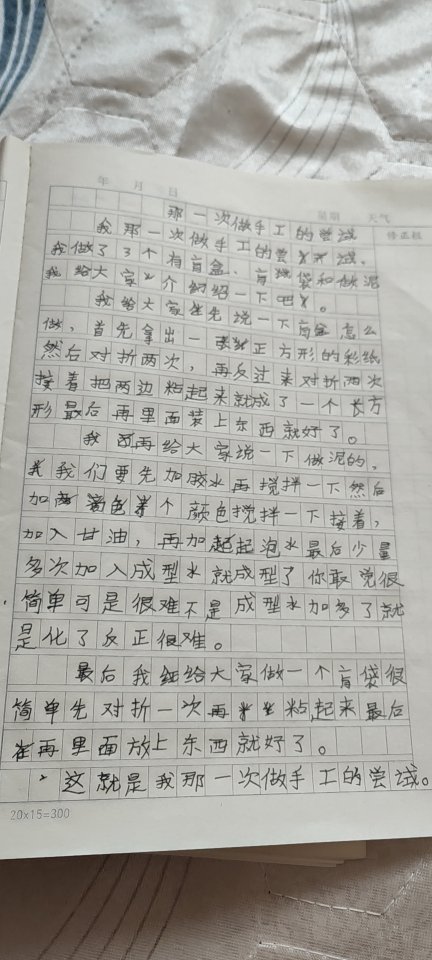 年 月 日 星期 天气
那一次做手工的尝试
修正栏
我那一次做手工的尝试。
我做了3个有盲盒、盲袋和做泥
我给大家介绍一下吧。
我给大家先说一下盲盒怎么
做,首先拿出一张正方形的彩纸
然后对折两次,再反过来对折两次
接着把两边粘起来就成了一个长方
形最后再里面装上东西就好了。
我再给大家说一下做泥的,
我们要先加胶水再搅拌一下然后
加个颜色搅拌一下接着,
加入甘油,再加起泡水最后少量
多次加入成型水就成型了你敢觉很
简单可是很难不是成型水加多了就
是化了反正很难。
最后我给大家做一个盲袋很
简单先对折一次再粘起来最后
再里面放上东西就好了。
这就是我那一次做手工的尝试。
20×15=300